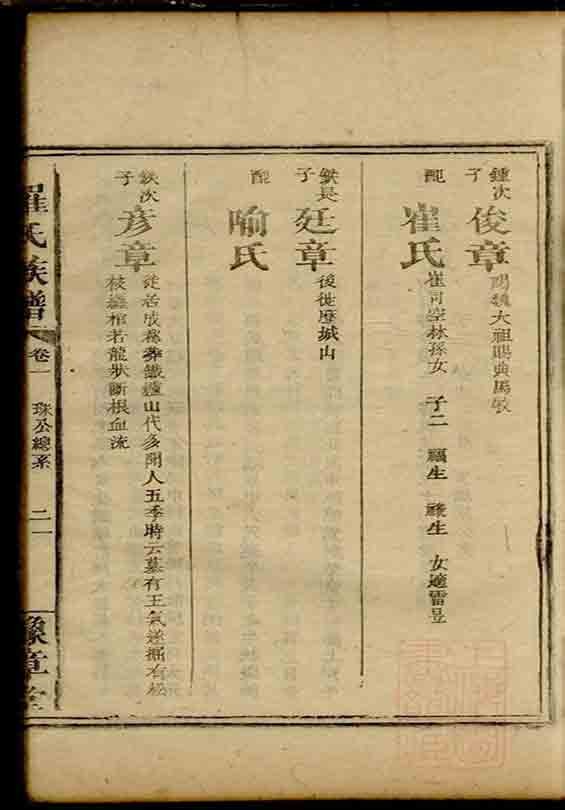 鍾次子 俊章 大祖賜典馬
配 崔氏 崔司空林孫女 子二 福生 生 女適雷昱
長子 廷章 後徙摩城山
配 喻氏
次子 彥章 徙居成都葬鐵爐山代多聞人五季時云墓有王氣遂掘有松
枝纏棺若龍狀斷根血流
羅氏族譜 卷一 珠公總系 二一 豫章堂